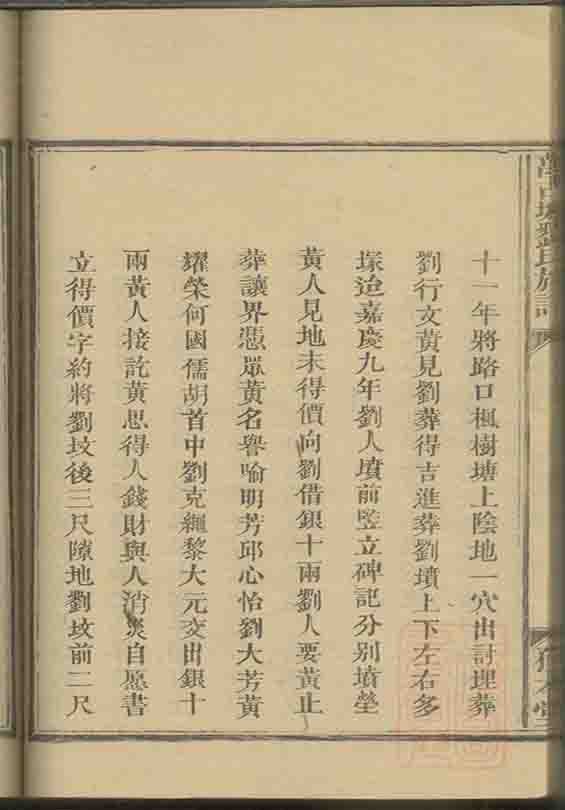 十一年將路口楓樹塘上陰地一穴出討埋葬
劉行文黃見劉葬得吉進葬劉墳上下左右多
塚迨嘉慶九年劉人墳前豎立碑記分别墳塋
黃人見地未得價向劉借銀十兩劉人要黃止
葬讓界憑眾黃名譽喻明芳邱心怡劉大芳黃
耀榮何國儒胡首中劉克繩黎大元交出銀十
兩黃人接訖黃思得人錢財與人消災自愿書
立得價字約將劉坟後三尺隙地劉坟前二尺